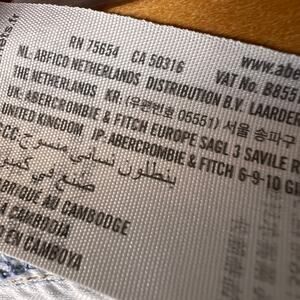 ets.fr
RN 75654 CA 50316 www.abe
NL: ABFICO NETHERLANDS DISTRIBUTION B.V. LAARDER
VAT No. B855
THE NETHERLANDS KR: (우편번호 05551) 서울 송파구
UK: ABERCROMBIE & FITCH EUROPE SAGL 3 SAVILE R
UNITED KINGDOM JP: ABERCROMBIE & FITCH 6-9-10 G
GCC: بنطلون نسائي منسوج
صنع في كمبو
BRIQUÉ AU CAMBODGE
CAMBODJA
O EN CAMBOYA